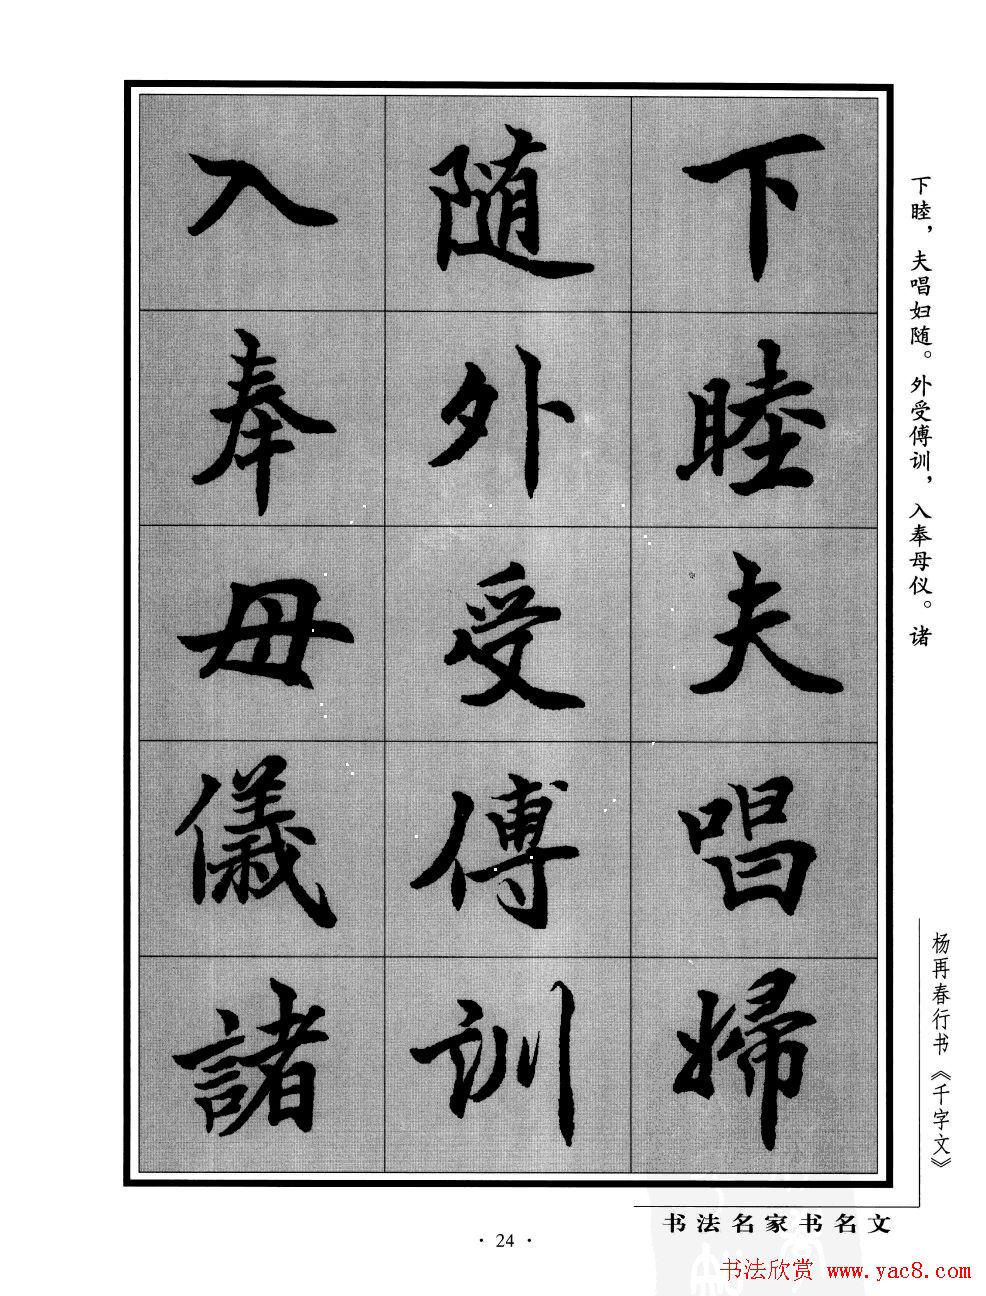 下睦夫唱婦
随外受傅訓
入奉母儀諸
下睦，夫唱妇随。外受傅训，入奉母仪。诸
杨再春行书《千字文》
书法名家书名文
· 24 ·
书法欣赏 www.yac8.com